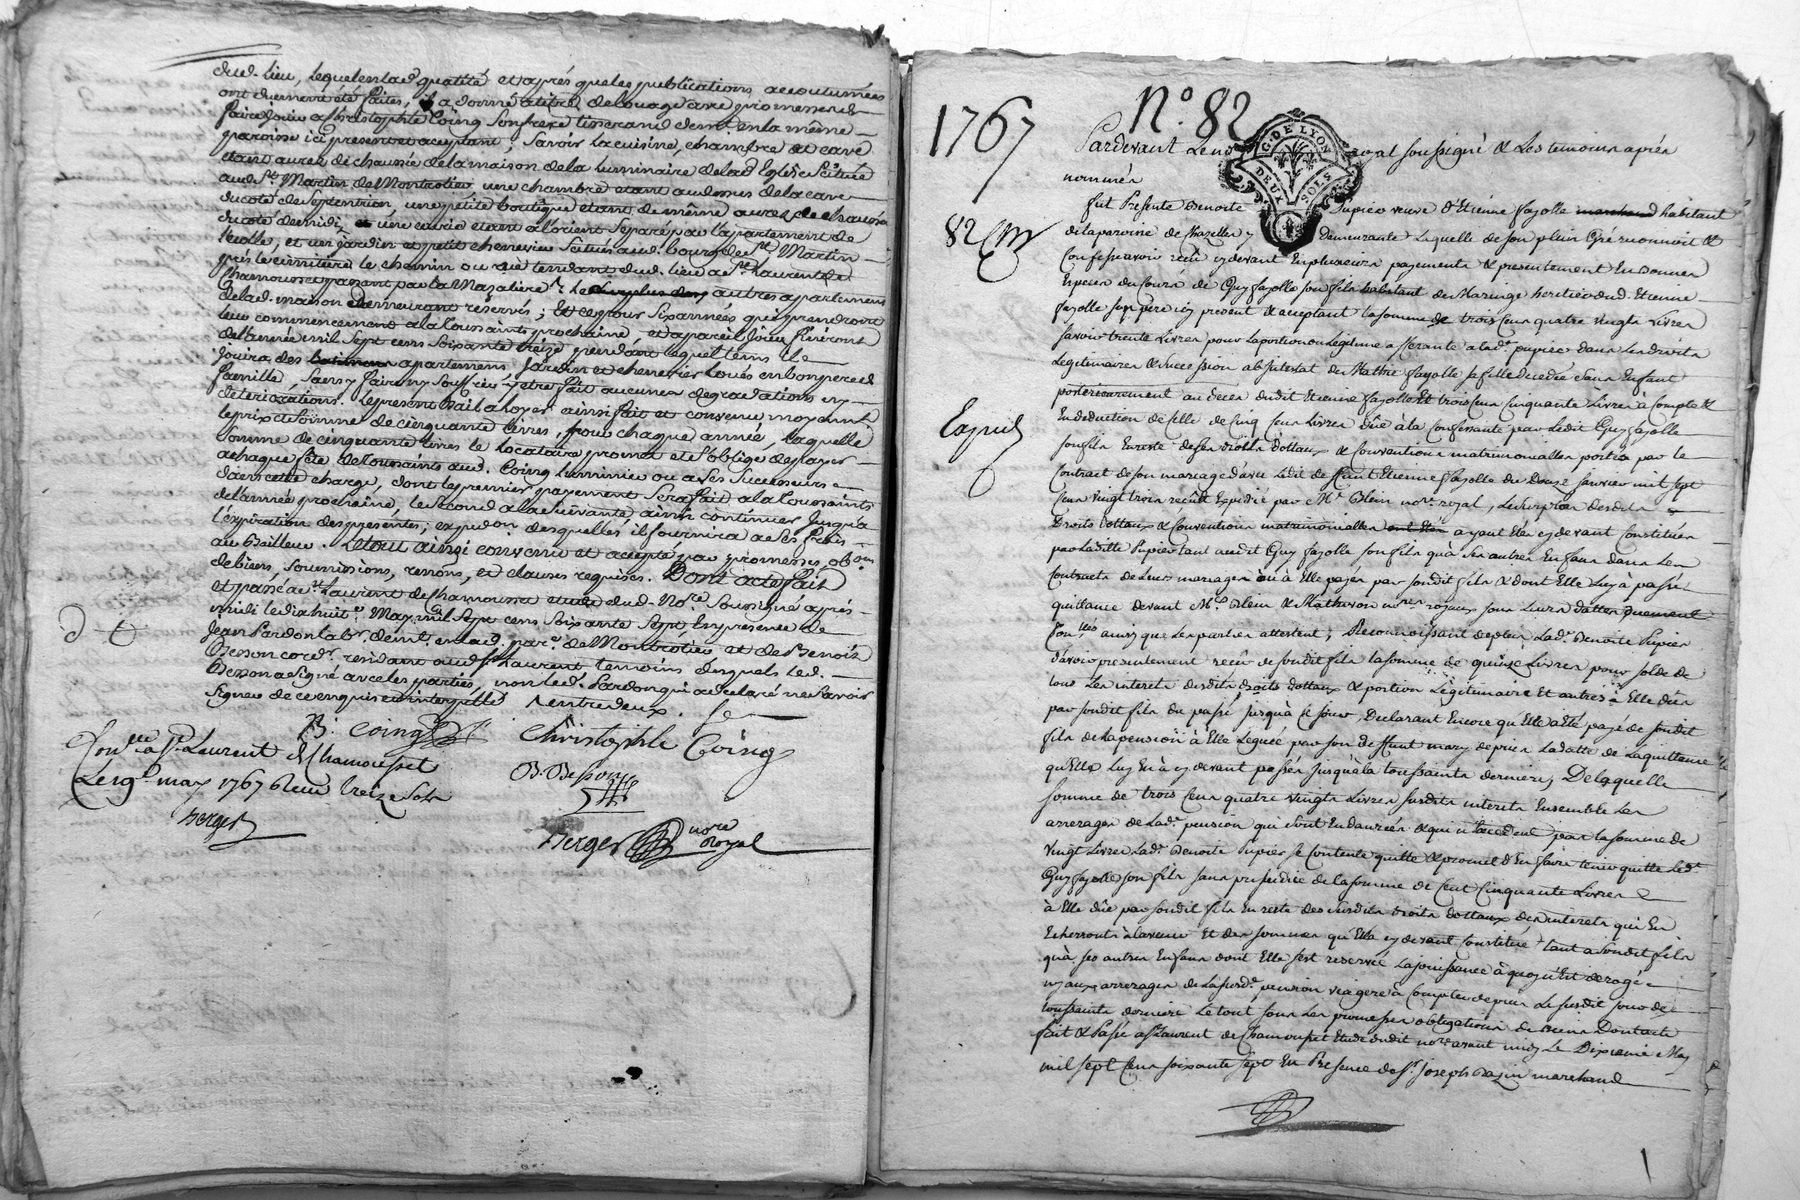 dud. lieu, lequel en lad. qualité et après que les publications accoutumées
ont duement été faites, a donné a titre de louage avec promesse de
faire jouir a Christophle Coing son frere tisserand demt. en la même
paroisse ici present et acceptant; Savoir la cuisine, chambre et cave
etant au rez de chaussée de la maison de la luminaire de lad. Eglise Scituée
aud. St. Martin de Montrotier une chambre etant au dessus de la cave
du coté de Septentrion, une petite boutique etant de même au rez de chaussée
du coté de midi, une ecurie etant a l'orient Separée par l'apartement de
l'ecolle, et un jardin et petit chenevier Scitués aud. bourg de St. Martin
près le cimitière le chemin ou rüe tendant dud. lieu a St. Laurent de
Chamousset passant par la Mazalière. Les autres apartemens
de lad. maison demeurant réservés; Et ce pour Six années qui prendront
leur commencement a la toussaints prochaine, et a pareil jour finiront
de l'année mil Sept cens Soixante treize pendant lequel tems il
jouira des apartemens, Jardin et chenevier loués en bon pere de
famille, Sans y faire ny Souffrir y etre fait aucunes degradations ny
déteriorations. le present Bail a loyer ainsi fait et convenu moyenant
le prix et Somme de cinquante livres, pour chaque année, laquelle
Somme de cinquante livres le locataire promet et s'oblige de payer
a chaque fête de toussaints aud. Coing luminier ou a ses Successeurs
dans cette charge, dont le premier payement Sera fait a la toussaints
de l'année prochaine, le second a la Suivante ainsi continuer jusqu'a
l'expiration des presentes; expedion desquelles il fournira a Ses frais
au Bailleur. Le tout ainsi convenu et accepté par promesses, obons
de biens, Soumissions, renons, et clauses requises. Dont acte fait
et passé a St. Laurent de Chamousset etude dud. Nore. Soussigné après
midi le dix huite. May mil Sept cens Soixante Sept, En presence de
Jean Pardon labr. demt. en lad. paro. de Montrotier et de Benoit
Besson cordr. residant aud. St. Laurent temoins desquels led.
Besson a Signé avec les parties, non led. Pardon qui a declaré ne Savoir
Signer de ce enquis et interpellé
B. Coing
Christophle Coing
B. Besson
Berger nore royal
Conlle a St. Laurent de Chamousset
Le 19e may 1767 Reçu treize Sols
Berger
1767
N° 82
G. DE LYON
DEUX SOLS
Pardevant Le no royal soussigné & Les temoins après
nommés
fut Presente Benoite Pupier veuve d'Etienne fayolle marchand habitant
de la paroisse de Chazelles y Demeurante Laquelle de son plein Gré reconnoit &
Confesse avoir recû cy devant En plusieurs payements & presentement En bonnes
Especes du Cours de Guy fayolle son fils habitant de Maringe heritier dud. Etienne
fayolle son pere icy present & acceptant la somme de trois Cens quatre vingts Livres
savoir trente Livres pour la portion ou Legitime afferante a lad. pupier dans Les droits
Legitimaires & succession abintestat de Mathie fayolle sa fille decedée sans Enfant
posterieurement au deces dudit Etienne fayolle Et trois Cens Cinquante Livres à Compte &
En deduction de celle de Cinq Cens Livres düe à la Confessante par Ledit Guy fayolle
son fils En reste de ses droits dottaux & Conventions matrimonialles portés par le
Expiés
Contract de son mariage d'avec Ledit deffunt Etienne fayolle du Douze Janvier mil sept
Cens vingt trois recû & Expedié par Me. Blein nore. royal, Le surplus desdits
Droits dottaux & Conventions matrimonialles ayant Eté cy devant Constitués
par Laditte Pupier tant audit Guy fayolle son fils qu'à ses autres Enfans dans Les
Contracts de Leurs mariages ou à Elle payés par sondit fils & dont Elle Luy à passé
quittance devant Me. Blein & Matheron nores royaux sous Leurs dattes
ainsy que Les parties attestent; Reconnoissant de plus Lad. Benoite Pupier
d'avoir presentement recû de sondit fils la somme de quinze Livres pour solde de
tous Les interets desdits droits dottaux & portion Legitimaire Et autres à Elle dûs
par sondit fils du passé Jusqu'à ce Jour, Declarant Encore qu'Elle a Eté payé de sondit
fils de la pension à Elle Leguée par son deffunt mary depuis La datte de La quittance
qu'Elle Luy En à cy devant passés Jusqu'à la toussaints derniere, De laquelle
somme de trois Cens quatre vingts Livres susdits interets Ensemble Les
arrerages de Lad. pension qui sont En danrées & qui n'Excedent pas la somme de
vingt Livres Lad. Benoite Pupier se Contente quitte & promet d'En faire tenir quitte Led.
Guy fayolle son fils sans prejudice de la somme de Cent Cinquante Livres
à Elle dûe par sondit fils En reste des susdits droits dottaux, des interets qui En
Echerront à l'avenir Et des sommes qu'Elle a cy devant Constitué tant a sondit fils
qu'à ses autres Enfans dont Elle s'est reservée La jouissance à quoy n'Est derogé
ny aux arrerages de La susd. pension viagere à Compter depuis Le susdit jour de
toussaints derniere Le tout sous Les promesses obligations de biens Dont acte
fait & Passé a St. Laurent de Chamousset Etude dudit nore. avant midy Le Dixieme May
mil sept Cens soixante sept En Presence de Sr. Joseph Bazin marchand